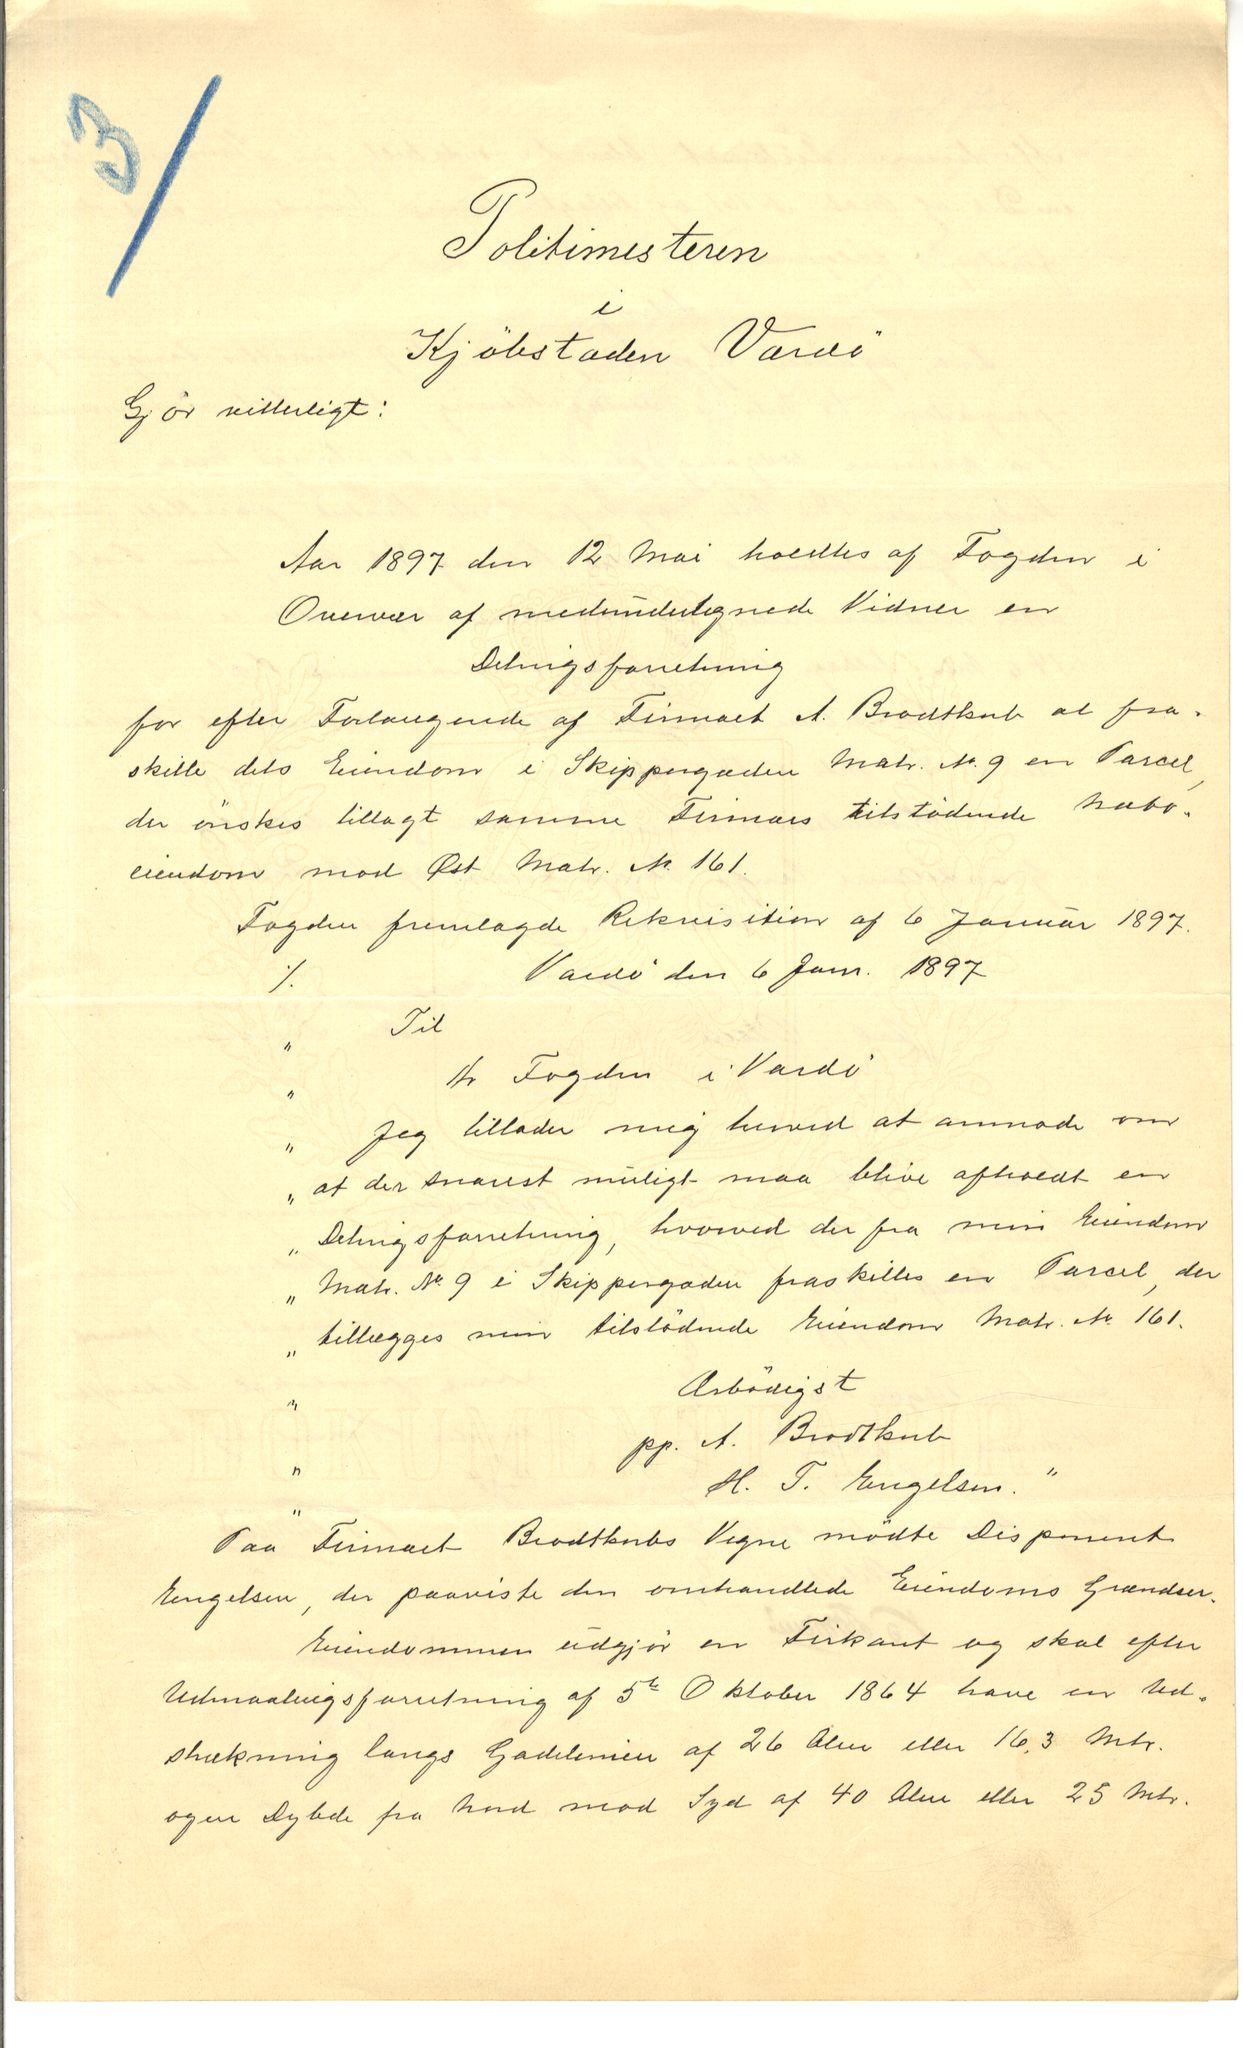 3
Politimesteren
i
Kjöbstaden Vardö
Gjör vitterligt:
Aar 1897 den 12 Mai holdtes af Fogden i
Overvær af medundertegnede Vidner en
Delingsforretning
for efter Forlangende af Firmaet A. Brodtkorb at fra-
skille dets Eiendom i Skippergaden Matr. No. 9 en Parcel,
der önskes tillagt samme Firmaes tilstödende Nabo-
eiendom mod Øst Matr. No 161.
Fogden fremlagde Rekvisition af 6 Januar 1897.
·/. Vardö den 6 Jan. 1897
" Til
" Hr Fogden i Vardö
" Jeg tillader mig herved at anmode om
" at der snarest muligt maa blive afholdt en
" Delingsforretning, hvorved der fra min Eiendom
" Matr. No. 9 i Skippergaden fraskilles en Parcel, der
" tillægges min tilstödende Eiendom Matr. No 161.
" Ærbödigst
pp. A. Brodtkorb
" H. T. Engelsen."
"
Paa Firmaet Brodtkorbs Vegne mödte Disponent
Engelsen, der paaviste den omhandlede Eiendoms Grændser.
Eiendommen udgjör en Firkant og skal efter
Udmaalingsforretning af 5te Oktober 1864 have en Ud-
strækning langs Gadelinien af 26 Alen eller 16,3 Mtr.
og en Dybde fra Nord mod Syd af 40 Alen eller 25 Mtr.